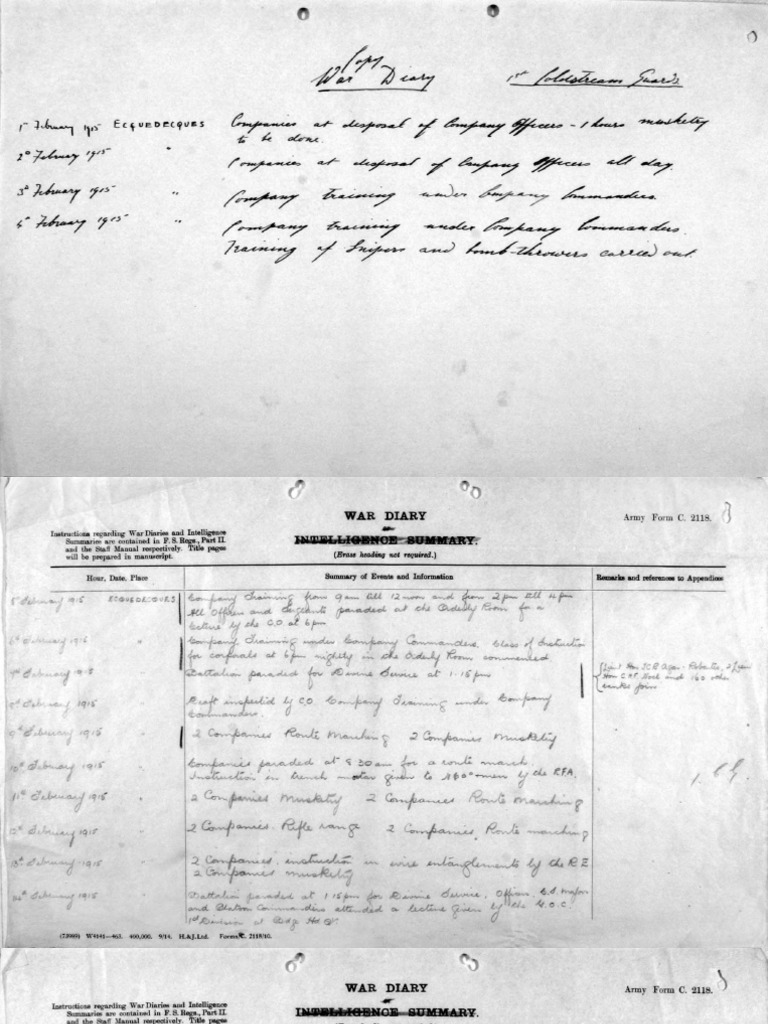 Copy
War Diary 1st Coldstream Guards
1st February 1915 ECQUEDECQUES Companies at disposal of Company Officers - 1 hours musketry
to be done.
2d February 1915 " Companies at disposal of Company Officers all day.
3d February 1915 " Company training under Company Commanders.
4th February 1915 " Company training under Company Commanders.
Training of Snipers and bomb-throwers carried out.
WAR DIARY
or
INTELLIGENCE SUMMARY.
(Erase heading not required.)
Army Form C. 2118.
Instructions regarding War Diaries and Intelligence
Summaries are contained in F. S. Regs., Part II.
and the Staff Manual respectively. Title pages
will be prepared in manuscript.
Hour, Date, Place Summary of Events and Information Remarks and references to Appendices
5th February 1915 ECQUEDECQUES Company Training from 9am till 12 noon and from 2pm till 4pm
All Officers and Sergeants paraded at the Orderly Room for a
lecture by the C.O at 6pm
6th February 1915 " Company Training under Company Commanders. Class of Instruction
for corporals at 6pm nightly in the Orderly Room commenced
7th February 1915 " Battalion paraded for Divine Service at 1.15pm
Lieut Hon
Hon and 160 other
ranks join
8th February 1915 " Draft inspected by C.O. Company Training under Company
Commanders.
9th February 1915 " 2 Companies Route Marching 2 Companies Musketry
10th February 1915 " Companies paraded at 8.30am for a route march.
Instruction in trench mortar given to men by the R.F.A.
11th February 1915 " 2 Companies Musketry 2 Companies Route Marching
12th February 1915 " 2 Companies. Rifle range 2 Companies, Route marching
13th February 1915 " 2 Companies. instruction in wire entanglements by the R.E
2 Companies musketry
14th February 1915 " Battalion paraded at 1.15pm for Divine Service. Officers, C.S. Majors
and Platoon Commanders attended a lecture given by the G.O.C.
1st Division at Bdge Hd Qr.
(73989) W4141—463. 400,000. 9/14. H.&J.Ltd. Forms/C. 2118/10.
WAR DIARY
or
INTELLIGENCE SUMMARY.
Army Form C. 2118.
Instructions regarding War Diaries and Intelligence
Summaries are contained in F. S. Regs., Part II.
and the Staff Manual respectively. Title pages